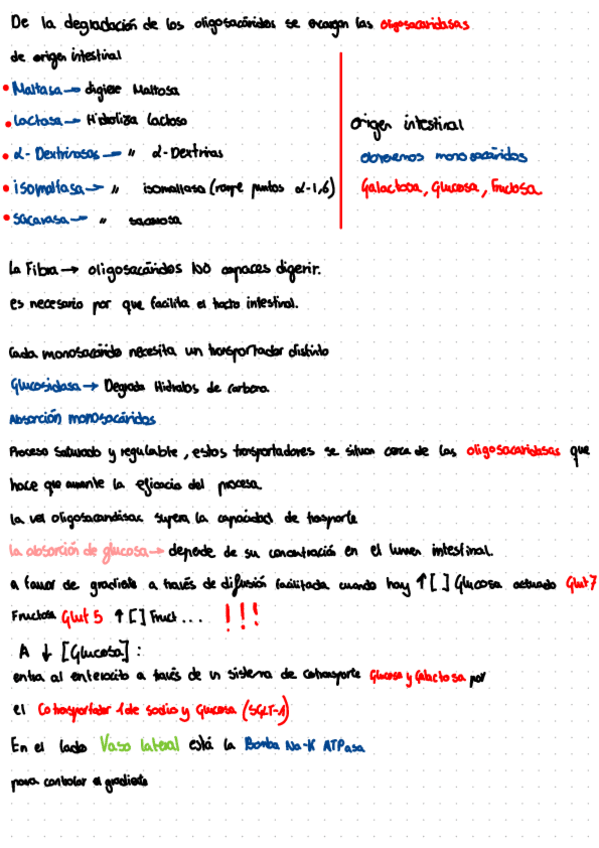 De la degradación de los oligosacáridos se encargan las oligosacaridasas
de origen intestinal
• Maltasa → digiere Maltosa
• Lactasa → Hidroliza lactosa
• α-Dextrinasas → " α-Dextrinas
• isomaltasa → " isomaltasa (rompe puntos α-1,6)
• sacarasa → " sacarosa
origen intestinal
obtenemos monosacáridos
Galactosa, Glucosa, Fructosa
La Fibra → oligosacáridos no capaces digerir.
es necesario por que facilita el tracto intestinal.
Cada monosacárido necesita un transportador distinto
Glucosidasa → Degrada Hidratos de carbono
Absorción monosacáridos
Proceso saturado y regulable, estos transportadores se situan cerca de las oligosacaridasas que
hace que aumente la eficacia del proceso.
la vel oligosacaridasas supera la capacidad de trasporte
la absorción de glucosa → depende de su concentració en el lumen intestinal.
a favor de gradiente a través de difusión facilitada cuando hay ↑[ ] Glucosa actuado Glut 7
Fructosa Glut 5 ↑[ ] Fruct... !!!
A ↓ [Glucosa] :
entra al enterocito a través de un sistema de cotransporte Glucosa y Galactosa por
el Cotransportador 1 de sodio y Glucosa (SGLT-1)
En el lado Vaso lateral está la Bomba Na-K ATPasa
para controlar el gradiente